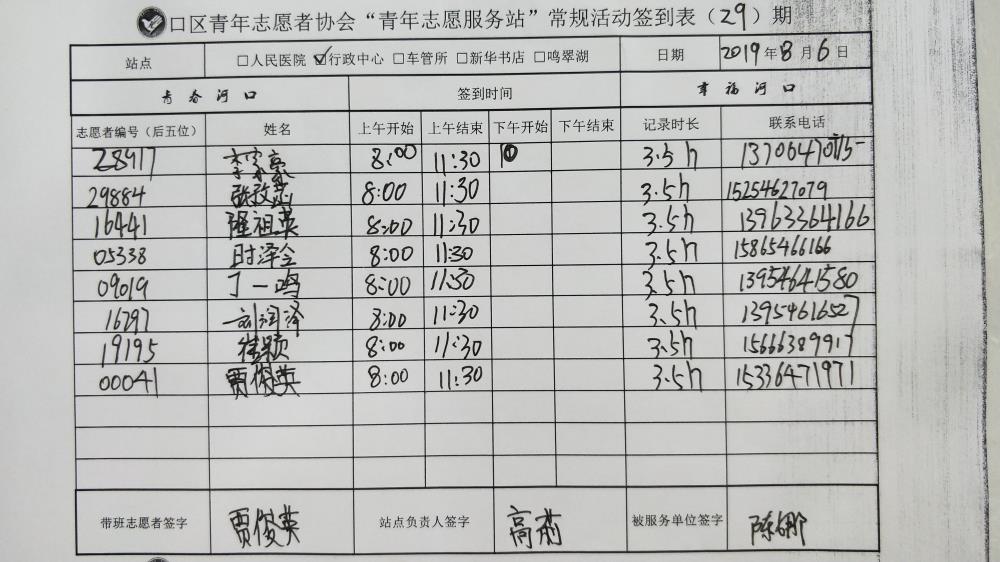 口区青年志愿者协会“青年志愿服务站”常规活动签到表（29）期
站点 □人民医院 ☑行政中心 □车管所 □新华书店 □鸣翠湖 日期 2019年8月6日
青春河口 签到时间 幸福河口
志愿者编号（后五位） 姓名 上午开始 上午结束 下午开始 下午结束 记录时长 联系电话
28917 李家豪 8:00 11:30 3.5h
29884 8:00 11:30 3.5h 15254627079
16441 隆祖英 8:00 11:30 3.5h 13963364166
05338 时泽全 8:00 11:30 3.5h 15865466166
09019 丁一鸣 8:00 11:30 3.5h 13954641580
16297 刘润泽 8:00 11:30 3.5h 13954616527
19195 徐颖 8:00 11:30 3.5h 15666389917
00041 贾俊英 8:00 11:30 3.5h 15336471971
带班志愿者签字 贾俊英 站点负责人签字 高 被服务单位签字 陈娜